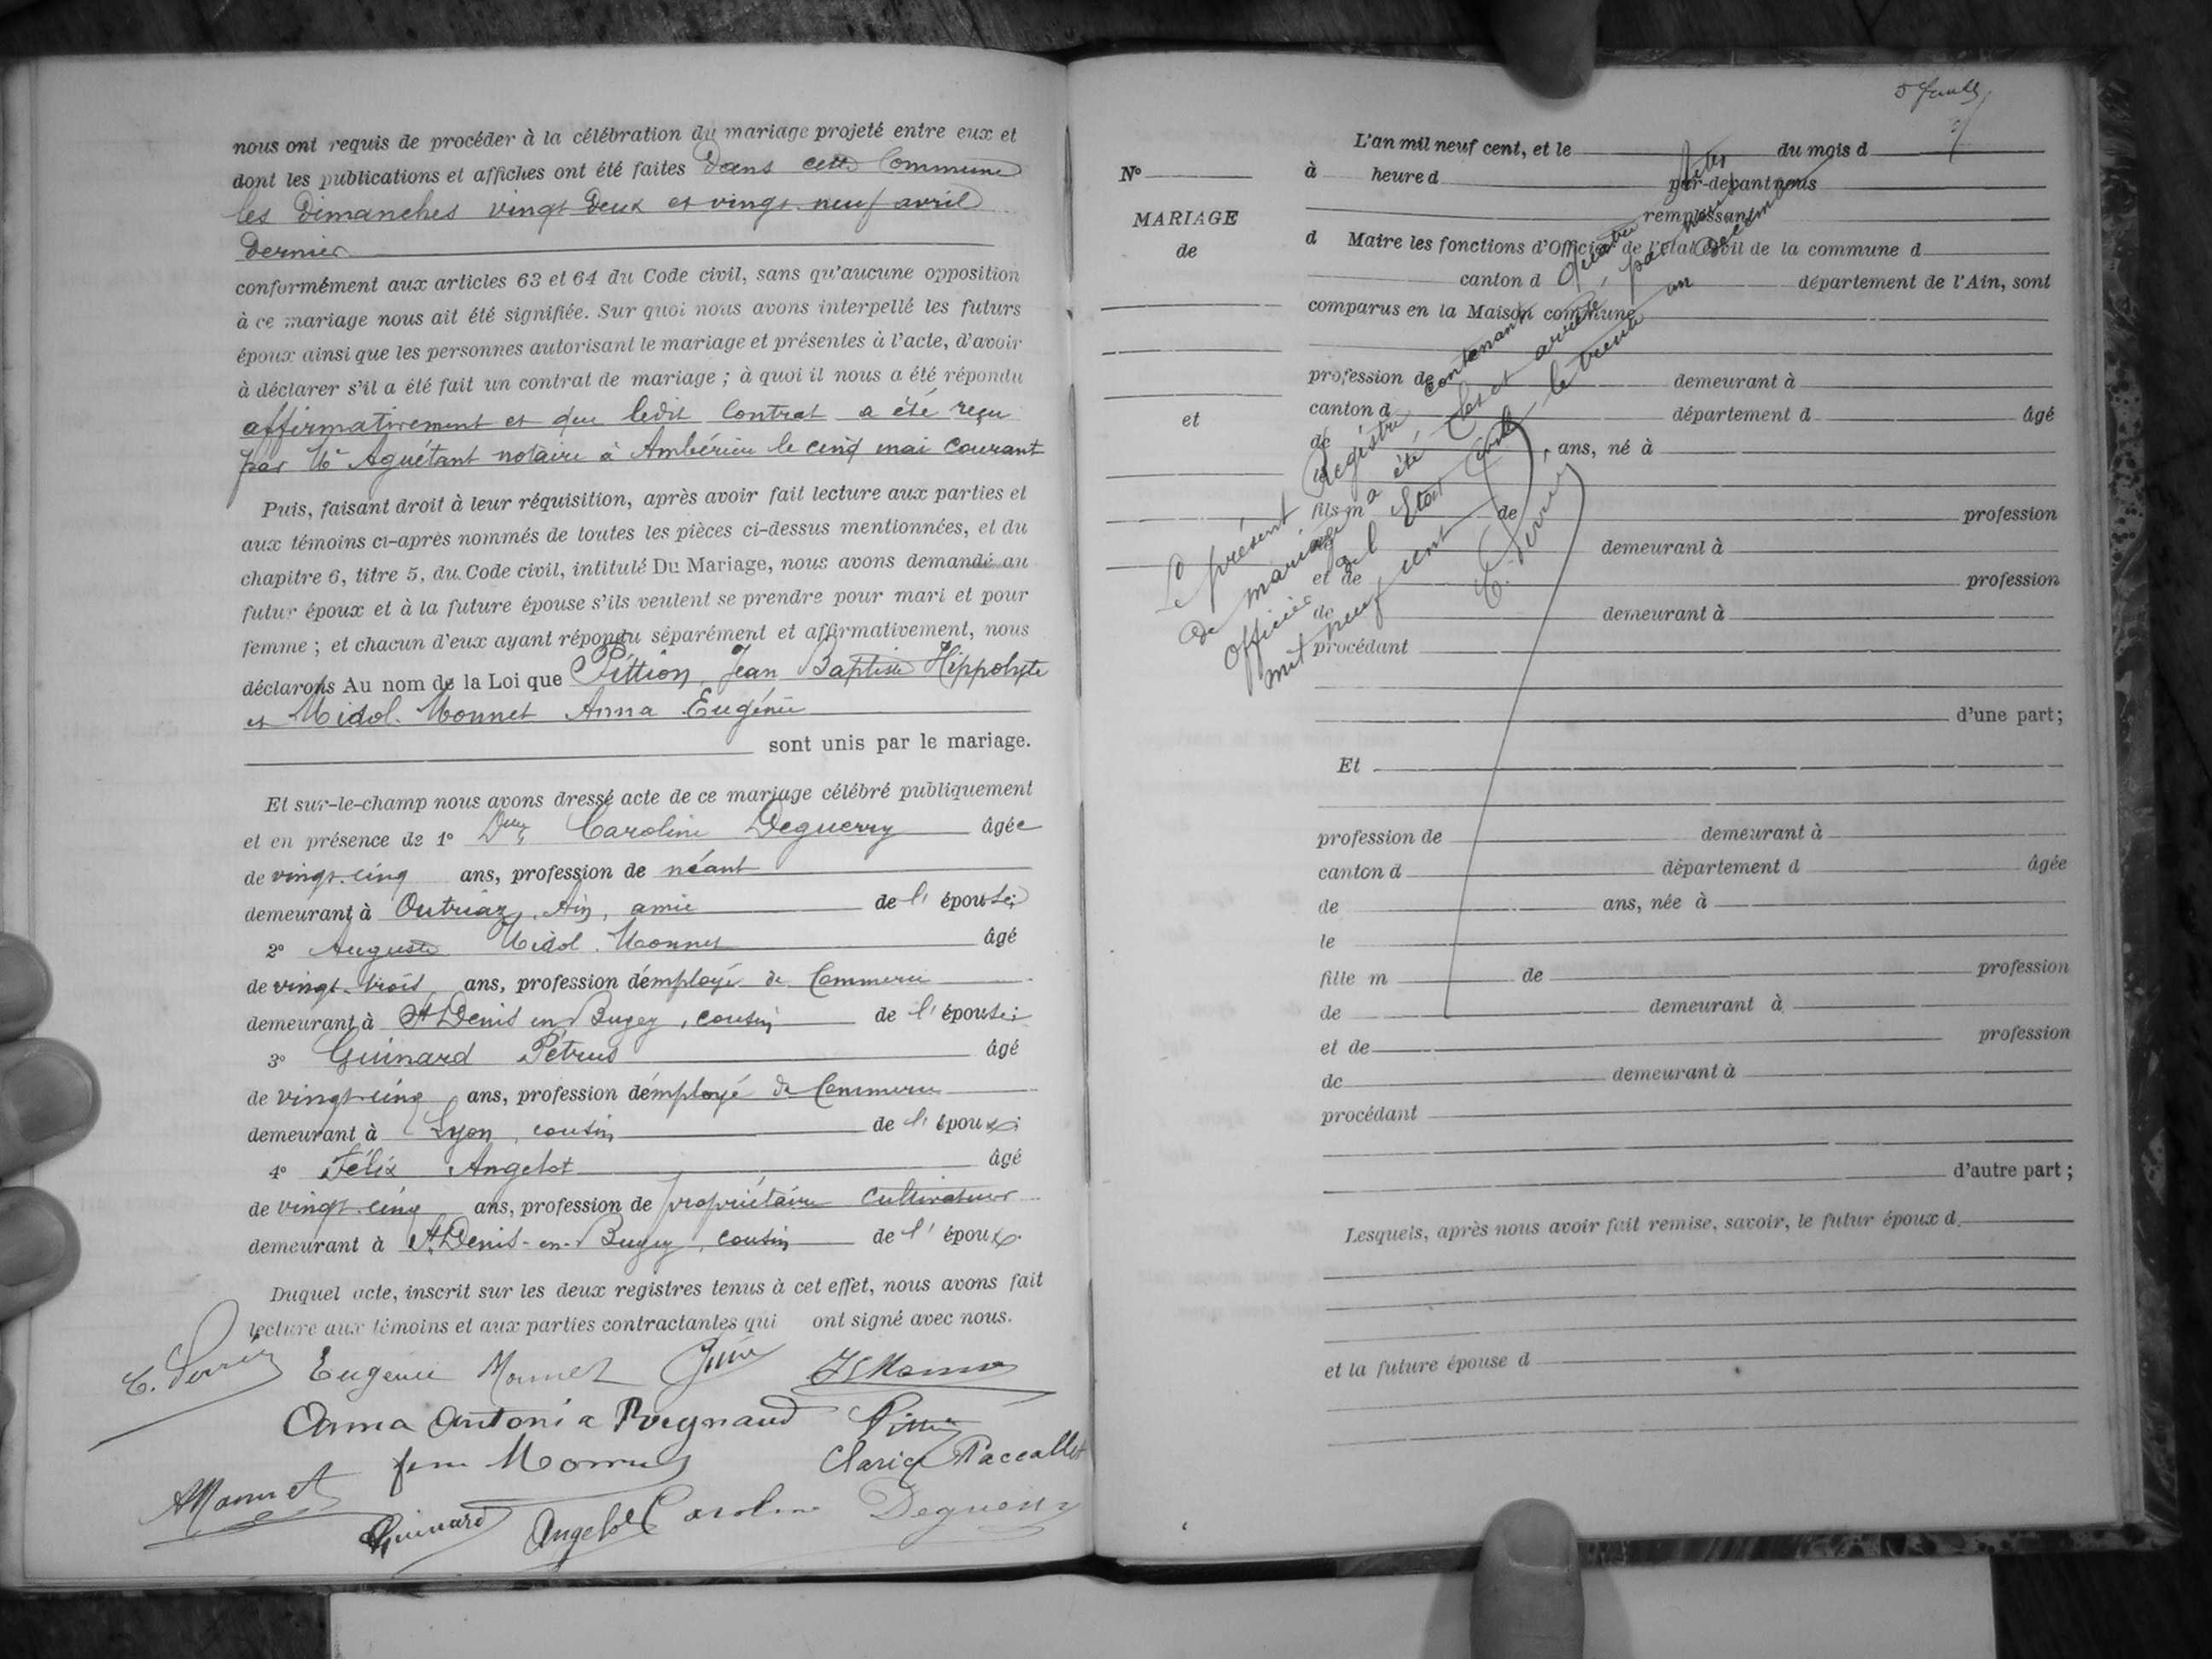 nous ont requis de procéder à la célébration du mariage projeté entre eux et
dont les publications et affiches ont été faites Dans cette Commune
les Dimanches vingt Deux et vingt-neuf avril
Dernier
conformément aux articles 63 et 64 du Code civil, sans qu'aucune opposition
à ce mariage nous ait été signifiée. Sur quoi nous avons interpellé les futurs
époux ainsi que les personnes autorisant le mariage et présentes à l'acte, d'avoir
à déclarer s'il a été fait un contrat de mariage ; à quoi il nous a été répondu
affirmativement et que ledit Contrat a été reçu
par Me Aguétant notaire à Ambérieu le cinq mai Courant
Puis, faisant droit à leur réquisition, après avoir fait lecture aux parties et
aux témoins ci-après nommés de toutes les pièces ci-dessus mentionnées, et du
chapitre 6, titre 5, du Code civil, intitulé Du Mariage, nous avons demandé au
futur époux et à la future épouse s'ils veulent se prendre pour mari et pour
femme ; et chacun d'eux ayant répondu séparément et affirmativement, nous
déclarons Au nom de la Loi que Pittion, Jean Baptiste Hippolyte
et Midol-Monnet Anna Eugénie
sont unis par le mariage.
Et sur-le-champ nous avons dressé acte de ce mariage célébré publiquement
et en présence de 1° Delle Caroline Deguerry âgée
de vingt-cinq ans, profession de néant
demeurant à Outriaz, Ain, amie de l'épouse;
2° Auguste Midol-Monnet âgé
de vingt-trois ans, profession d'employé de Commerce
demeurant à St Denis en Bugey, cousin de l'épouse;
3° Guinard Pétrus âgé
de vingt-cinq ans, profession d'employé de Commerce
demeurant à Lyon, cousin de l'époux;
4° Félix Angelot âgé
de vingt-cinq ans, profession de propriétaire Cultivateur
demeurant à St Denis-en-Bugey, cousin de l'époux.
Duquel acte, inscrit sur les deux registres tenus à cet effet, nous avons fait
lecture aux témoins et aux parties contractantes qui ont signé avec nous.
Eugénie Monnet
Anna Antonia Pittion
fem Monnet Claria Paccallet
AMonnet
Guinard Angelot Caroline Deguerry
5 feuillets
N°
MARIAGE
de
et
L'an mil neuf cent, et le du mois d
à heure d par-devant nous
remplissant
d Maire les fonctions d'Officier de l'état civil de la commune d
canton d département de l'Ain, sont
comparus en la Maison commune
profession de demeurant à
canton d département d âgé
de ans, né à
le
fils m de profession
de demeurant à
et de profession
de demeurant à
procédant
d'une part;
Et
profession de demeurant à
canton d département d âgée
de ans, née à
le
fille m de profession
de demeurant à
et de profession
de demeurant à
procédant
d'autre part ;
Lesquels, après nous avoir fait remise, savoir, le futur époux d
et la future épouse d
Le présent Registre contenant quatre actes
de mariage a été clos et arrêté, par nous
officier de l'Etat Civil le trente un Décembre
mil neuf cent